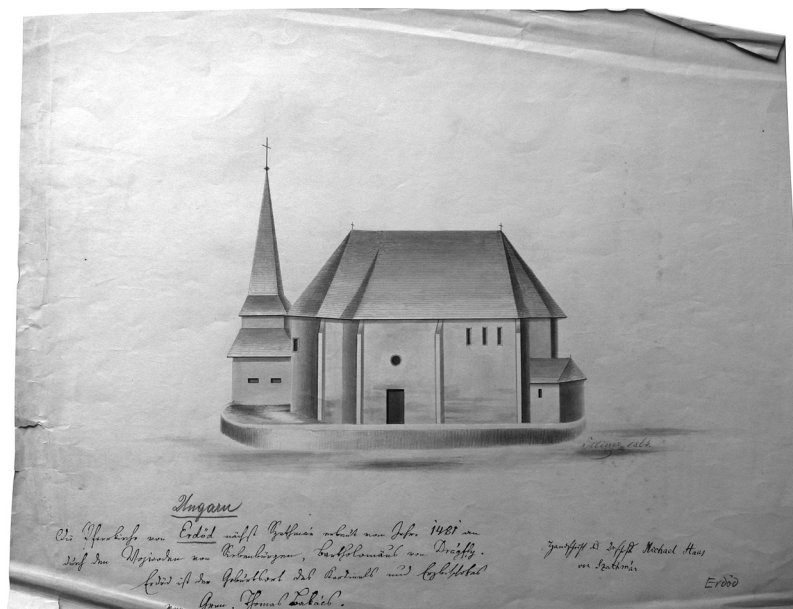 Ungarn
Die Pfarrkirche von Erdőd nächst Szathmár erbaut im Jahre 1481 an
durch den Wojwoden von Siebenbürgen, Bartholomäus von Drágfy.
Erdőd ist der Geburtsort des Kardinals und Erzbischofes
von Gran, Thomas Bakács.
Handschrift des Michael Haas
von Szathmár
Erdőd